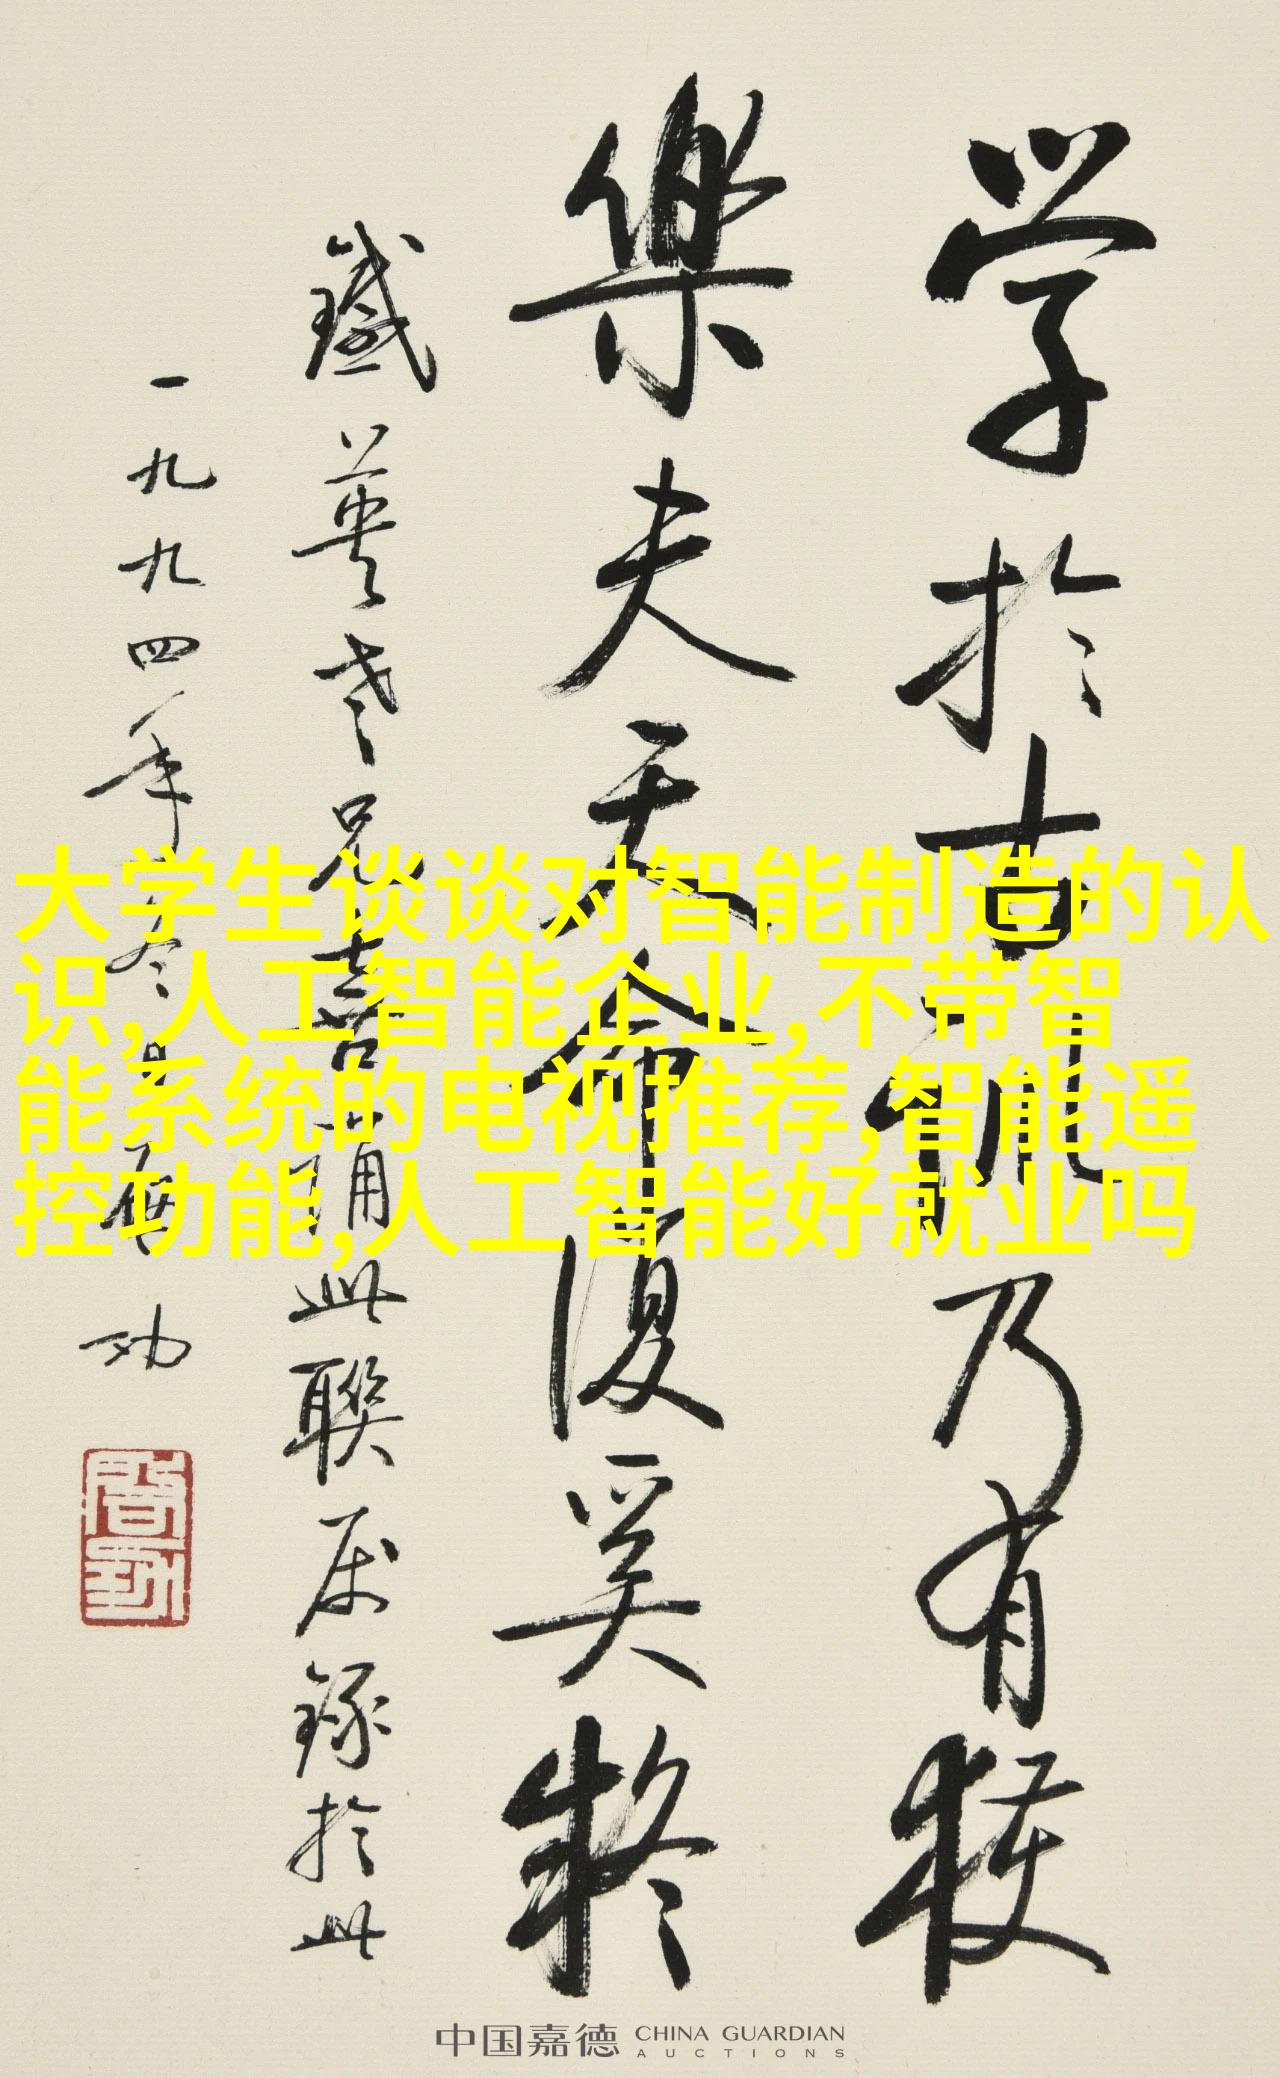 学於古训乃有获
樂夫天命復奚疑
鐵英老兄喜誦此聯属録於此
一九九四年冬日啟功
啟功
大学生谈谈对智能制造的认
识,人工智能企业,不带智
能系统的电视推荐,智能遥
控功能,人工智能好就业吗
中国嘉德 CHINA GUARDIAN
AUCTIONS